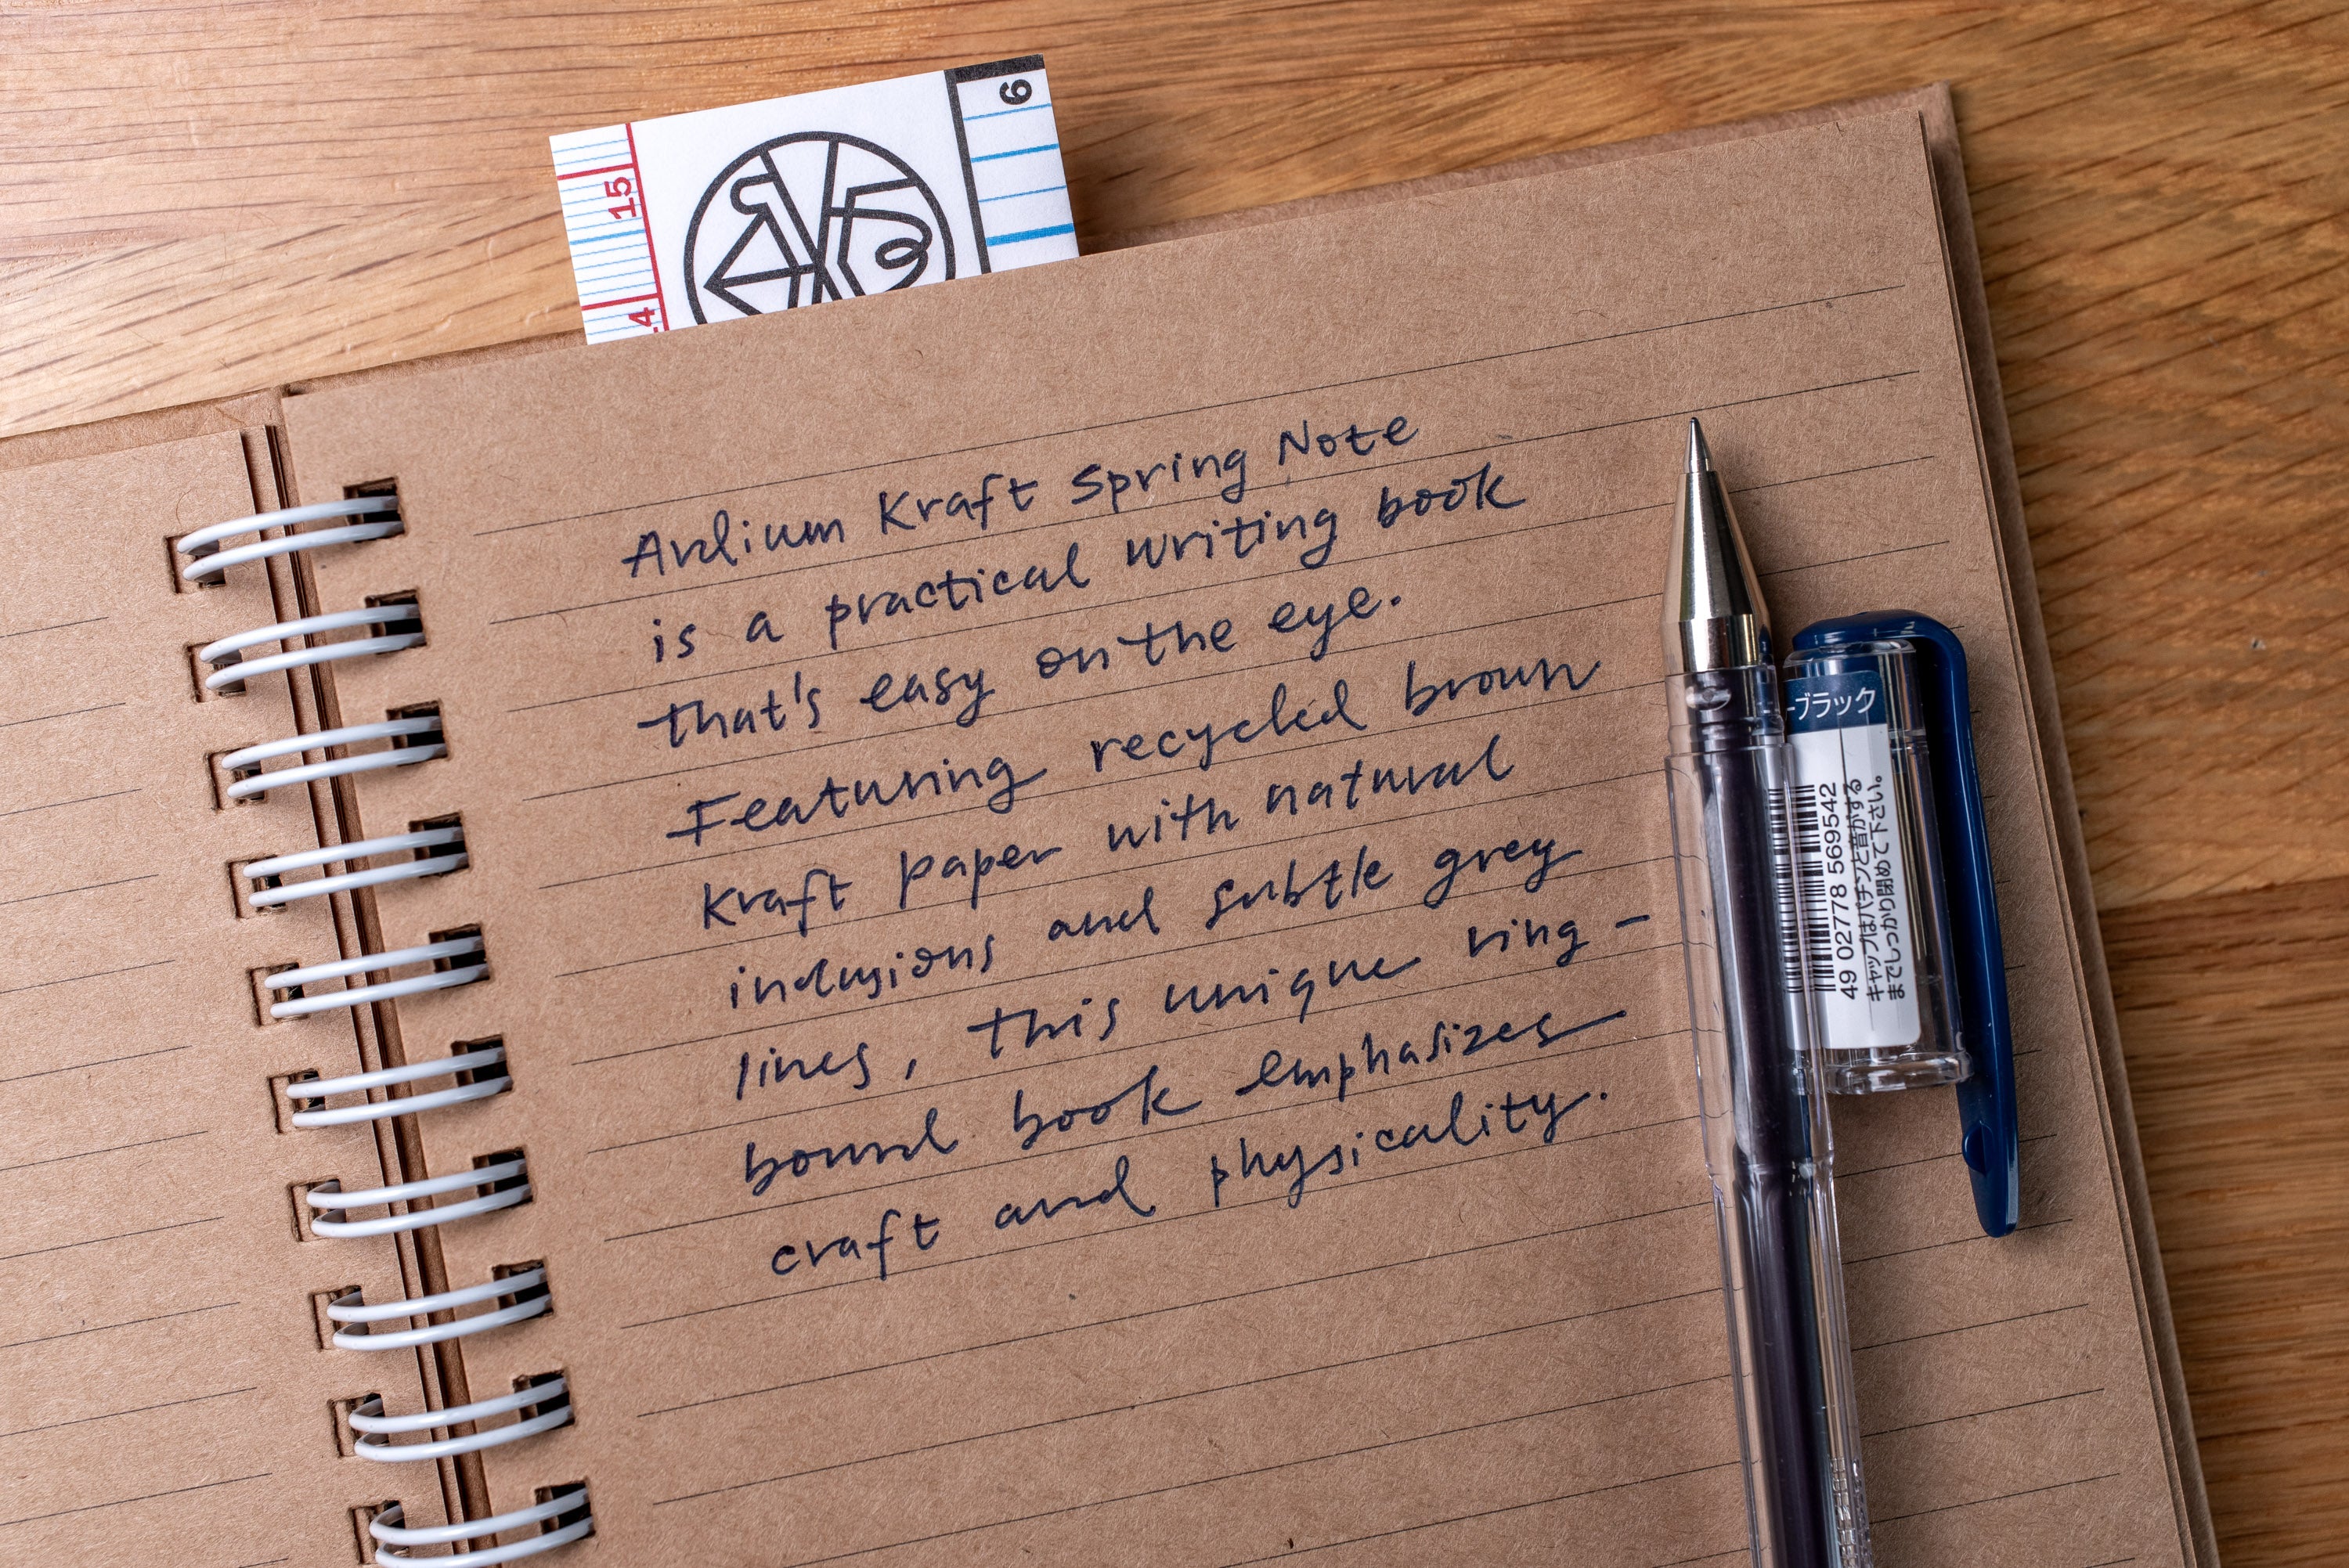 6
15
14
Ardium Kraft Spring Note
is a practical writing book
that's easy on the eye.
Featuring recycled brown
kraft paper with natural
inclusions and subtle grey
lines, this unique ring-
bound book emphasizes
craft and physicality.
ーブラック
49 02778 569542
キャップはパチンと音がする
までしっかり閉めて下さい。